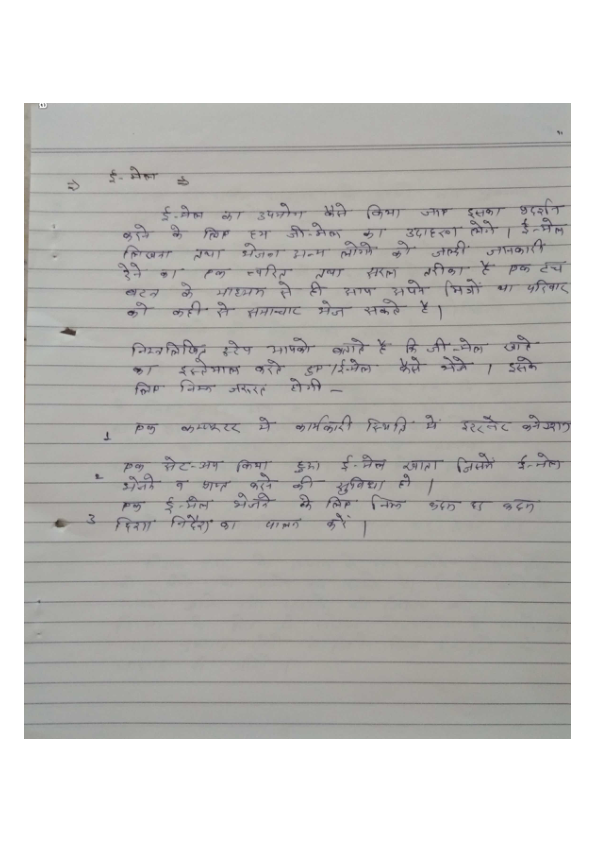 ⇒ ई-मेल ⇒
ई-मेल का उपयोग कैसे किया जाए इसका प्रदर्शन
करने के लिए हम जी-मेल का उदाहरण लेंगे। ई-मेल
लिखना तथा भेजना अन्य लोगों को जल्दी जानकारी
देने का एक त्वरित तथा सरल तरीका है एक टच
बटन के माध्यम से ही आप अपने मित्रों या परिवार
को कही से समाचार भेज सकते है।
निम्नलिखित स्टेप आपको बताते है कि जी-मेल खाते
का इस्तेमाल करते हुए ई-मेल कैसे भेजे। इसके
लिए निम्न जरूरत होगी –
1 एक कम्प्यूटर मे कार्यकारी स्थिति में इंटरनेट कनेक्शन
2 एक सेट-अप किया हुआ ई-मेल खाता जिसमें ई-मेल
भेजने व प्राप्त करने की सुविधा हो।
3 एक ई-मेल भेजने के लिए निम्न कदम दर कदम
दिशा निर्देशों का पालन करें।